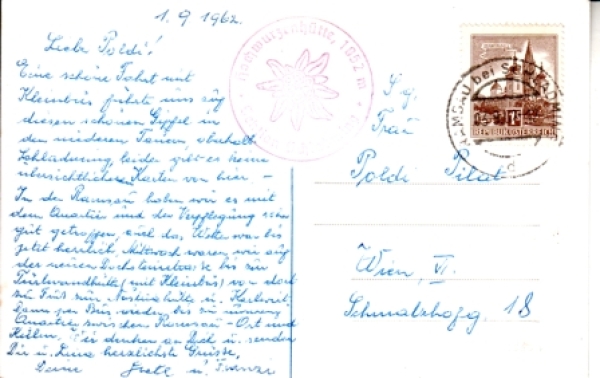 1.9.1962.
Liebe Poldi!
Eine schöne Fahrt mit
Kleinbus führte uns auf
diesen schönen Gipfel in
den niederen Tauern, oberhalb
Schladming, leider gibt es keine
übersichtlichen Karten von hier. –
In der Ramsau haben wir es mit
dem Quartier und der Verpflegung sehr
gut getroffen, auch das Wetter war bis
jetzt herrlich, Mittwoch waren wir auf
der neuen Dachsteinstrasse bis zur
Türlwandhütte (mit Kleinbus) von dort
zu Fuß zur Austriahütte u.
dann per Bus wieder bis zu unserem
Quartier zwischen Ramsau-Ort und
Kulm. Wir denken an Dich u. senden
Dir u. Lina herzlichste Grüsse,
Deine Grete u. Franzi
Hochwurzenhütte, 1852 m
S. g.
Frau
Poldi Pilat
Wien, VI.
Schmalzhofg. 18
RAMSAU bei SCHLADMING
REPUBLIK ÖSTERREICH